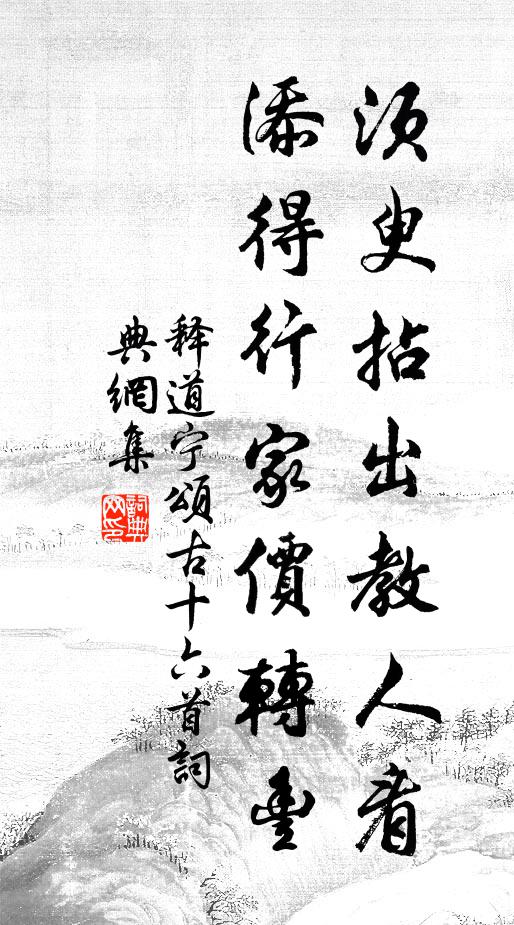 须臾拈出教人看
添得行家價轉豊
释道宁頌古十六首詞
典網集
詞典網印